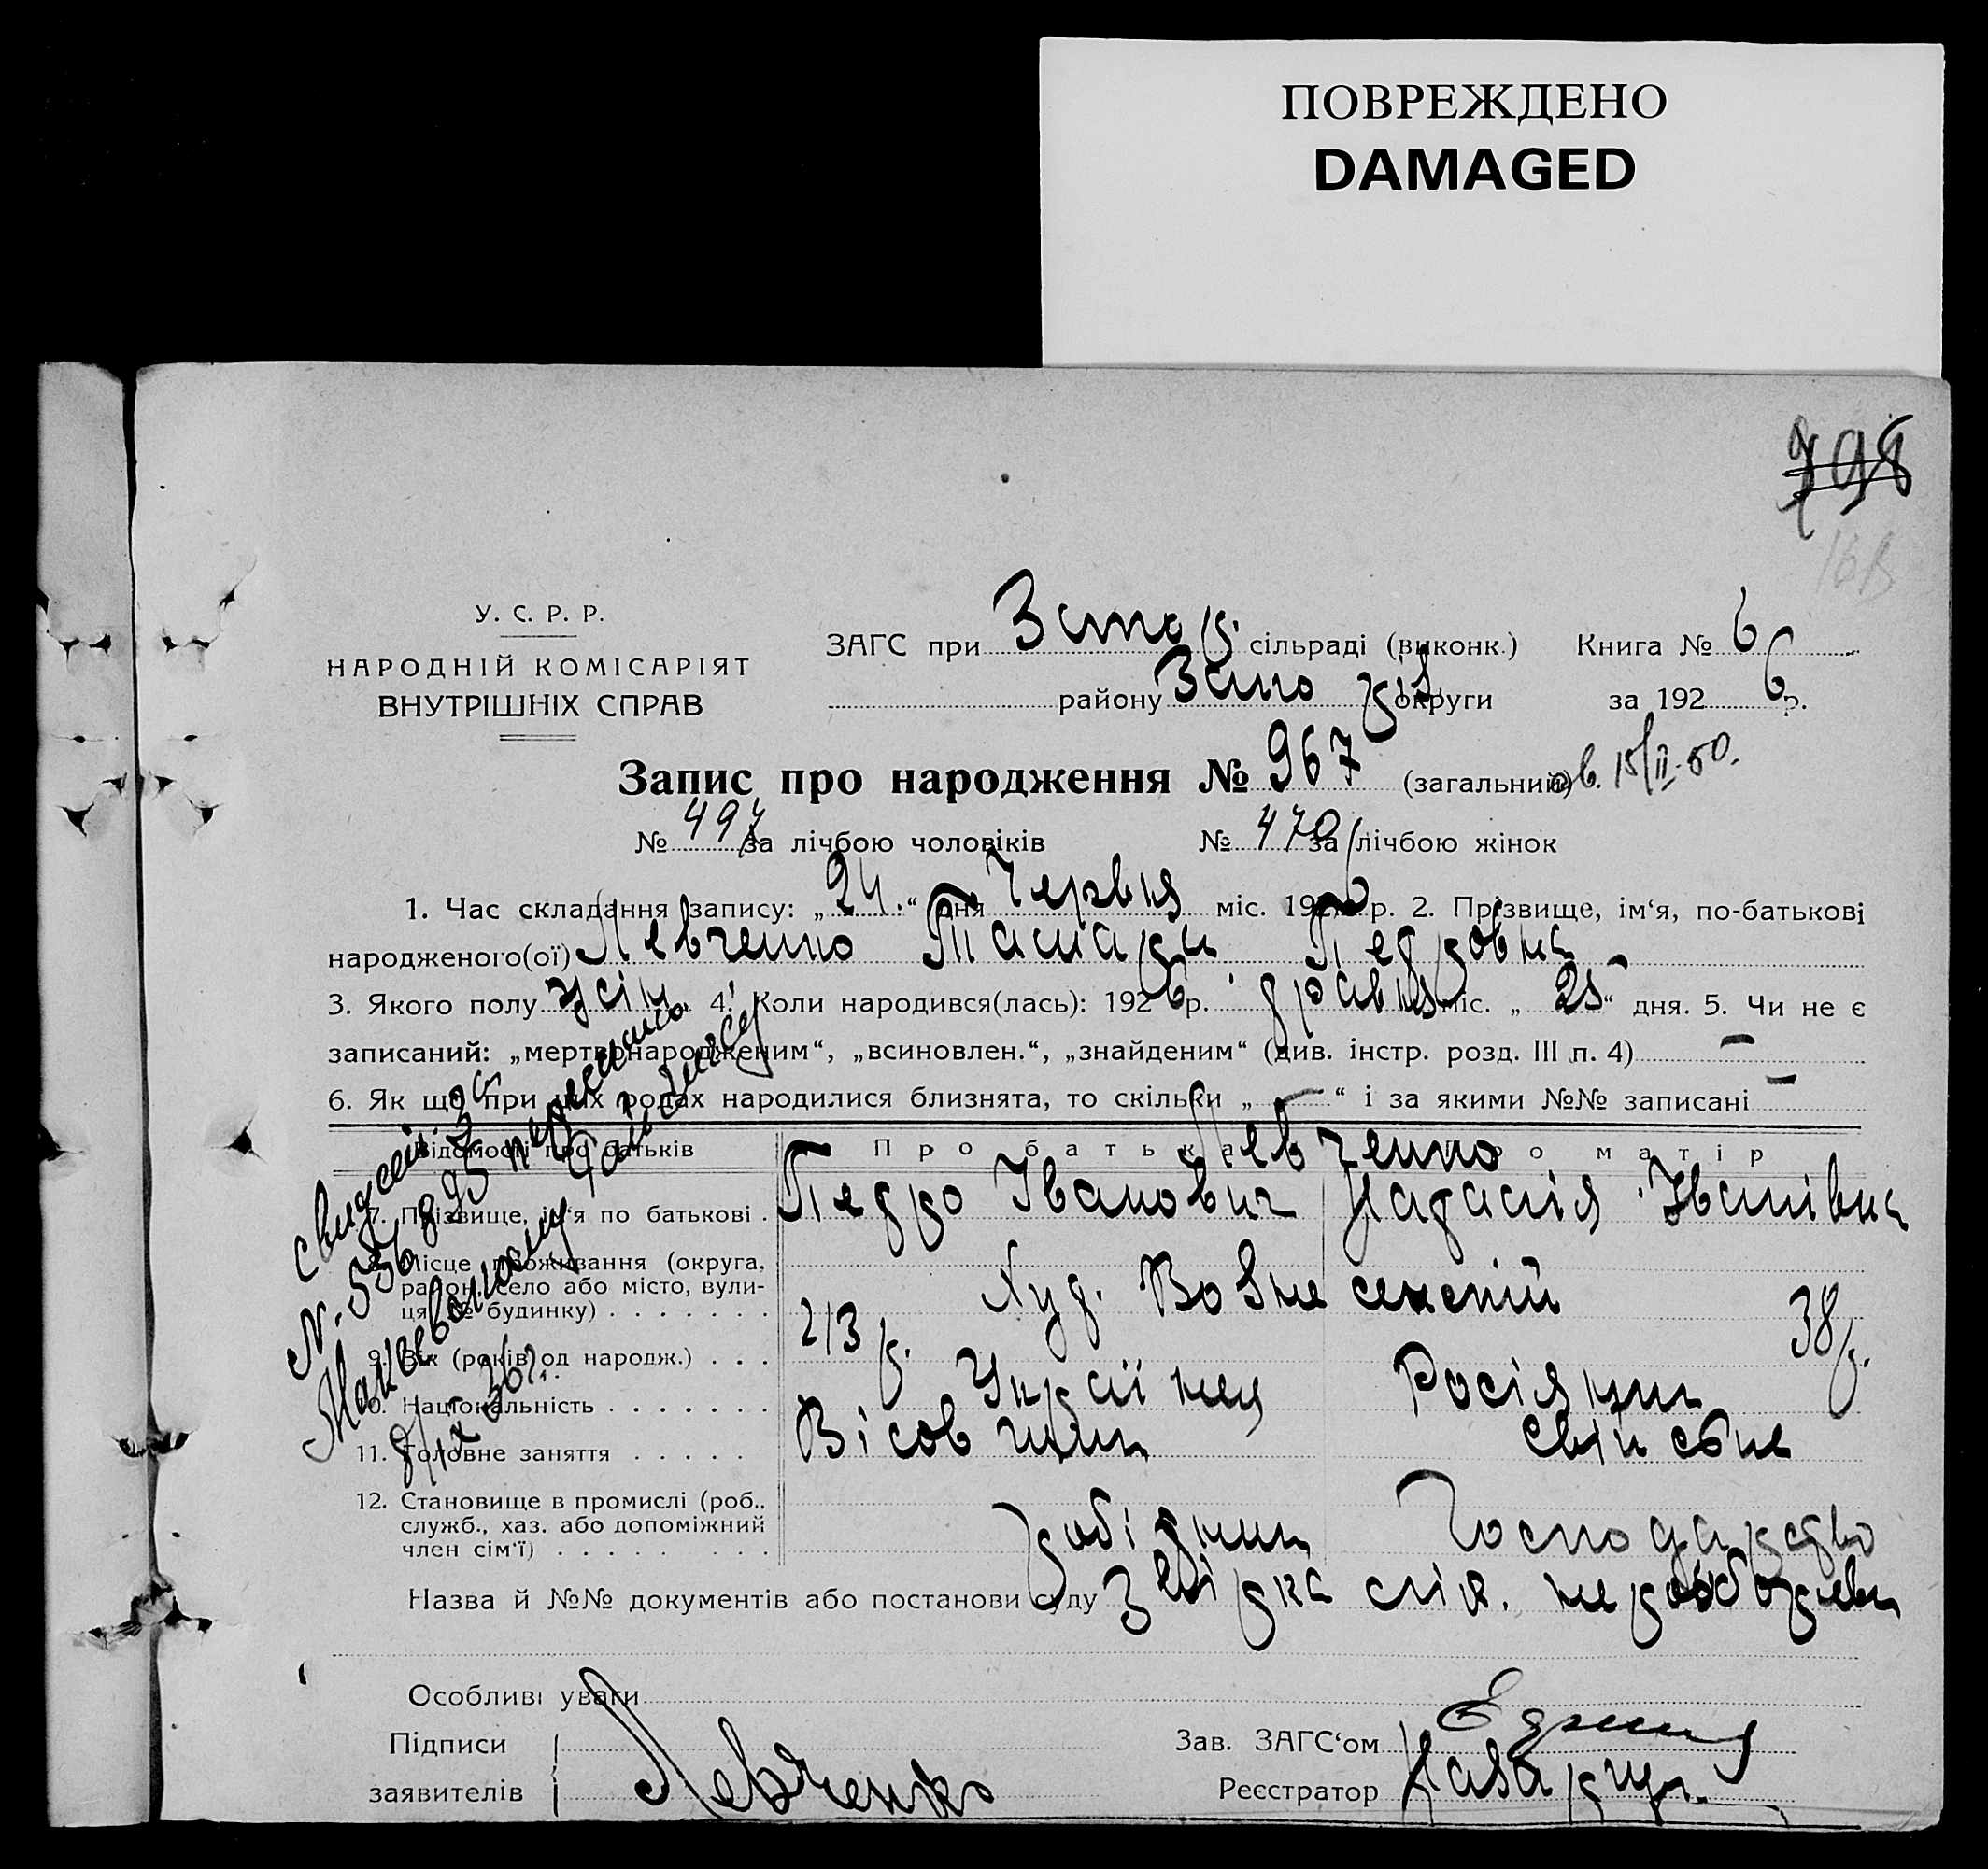 ПОВРЕЖДЕНО
DAMAGED
798
16в
У. С. Р. Р.
НАРОДНІЙ КОМІСАРІЯТ
ВНУТРІШНІХ СПРАВ
ЗАГС при сільраді (виконк.) Книга № 6
району округи за 1926 р.
Запис про народження № 967 (загальний) 15/II-50.
№ 497 за лічбою чоловіків № 470 за лічбою жінок
1. Час складання запису: „24.“ дня Червня міс. 1926 р. 2. Прізвище, ім‘я, по-батькові
народженого(ої) Левченко Тамара Педровна
3. Якого полу жін. 4. Коли народився(лась): 1926 р. травня міс. „25“ дня. 5. Чи не є
записаний: „мертвонародженим“, „всиновлен.“, „знайденим“ (див. інстр. розд. III п. 4) —
6. Як що при цих родах народилися близнята, то скільки „—“ і за якими №№ записані —
Відомості про батьків Про батька Про матір
Левченко
7. Прізвище, ім‘я по батькові . Педро Іванович Надалія Іванівна
8. Місце проживання (округа,
район, село або місто, вули-
ця, № будинку) . . . . . . . Худ. Вознесенській
9. Вік (років од народж.) . . . 43 р. 38 р.
10. Національність . . . . . . . Українец Росіянка
11. Головне заняття . . . . . Вісовщик Свійське
12. Становище в промислі (роб.,
служб., хаз. або допоміжний
член сім‘ї) . . . . . . . . робідник Господарство
Назва й №№ документів або постанови суду Звірка слів.
Особливі уваги
Підписи
заявителів Левченко
Зав. ЗАГС‘ом
Реєстратор
N. 556
8/IX 36 г.